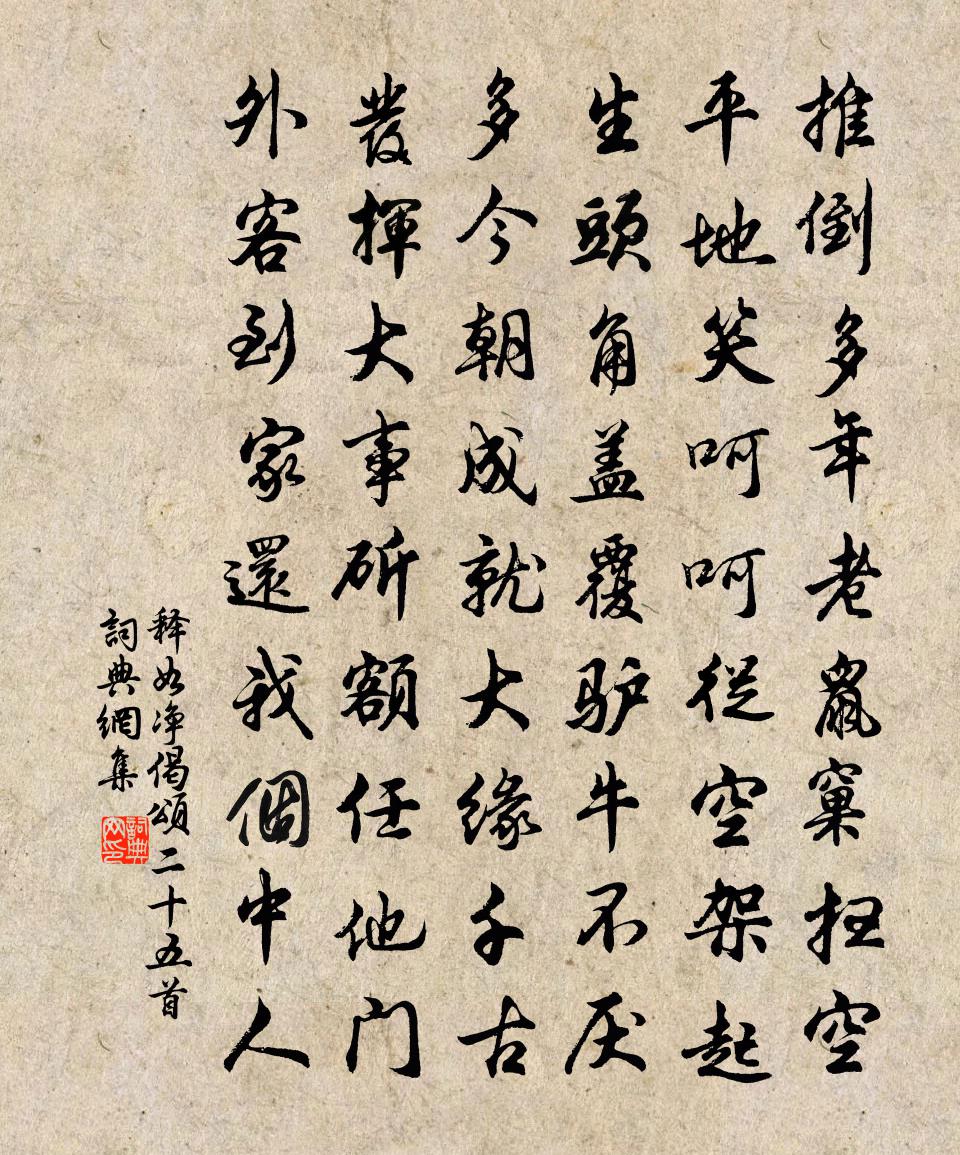 推倒多年老鼠窠扫空
平地笑呵呵從空架起
生頭角盖覆驴牛不厌
多今朝成就大缘千古
發揮大事斫額任他門
外客到家還我個中人
释如净偈頌二十五首
詞典網集
詞典
网印